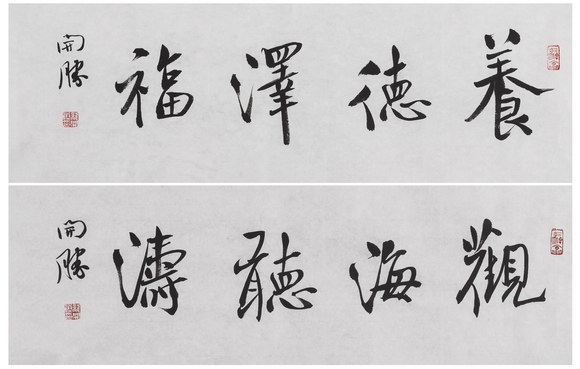 養德澤福
開勝
觀海聽濤
開勝